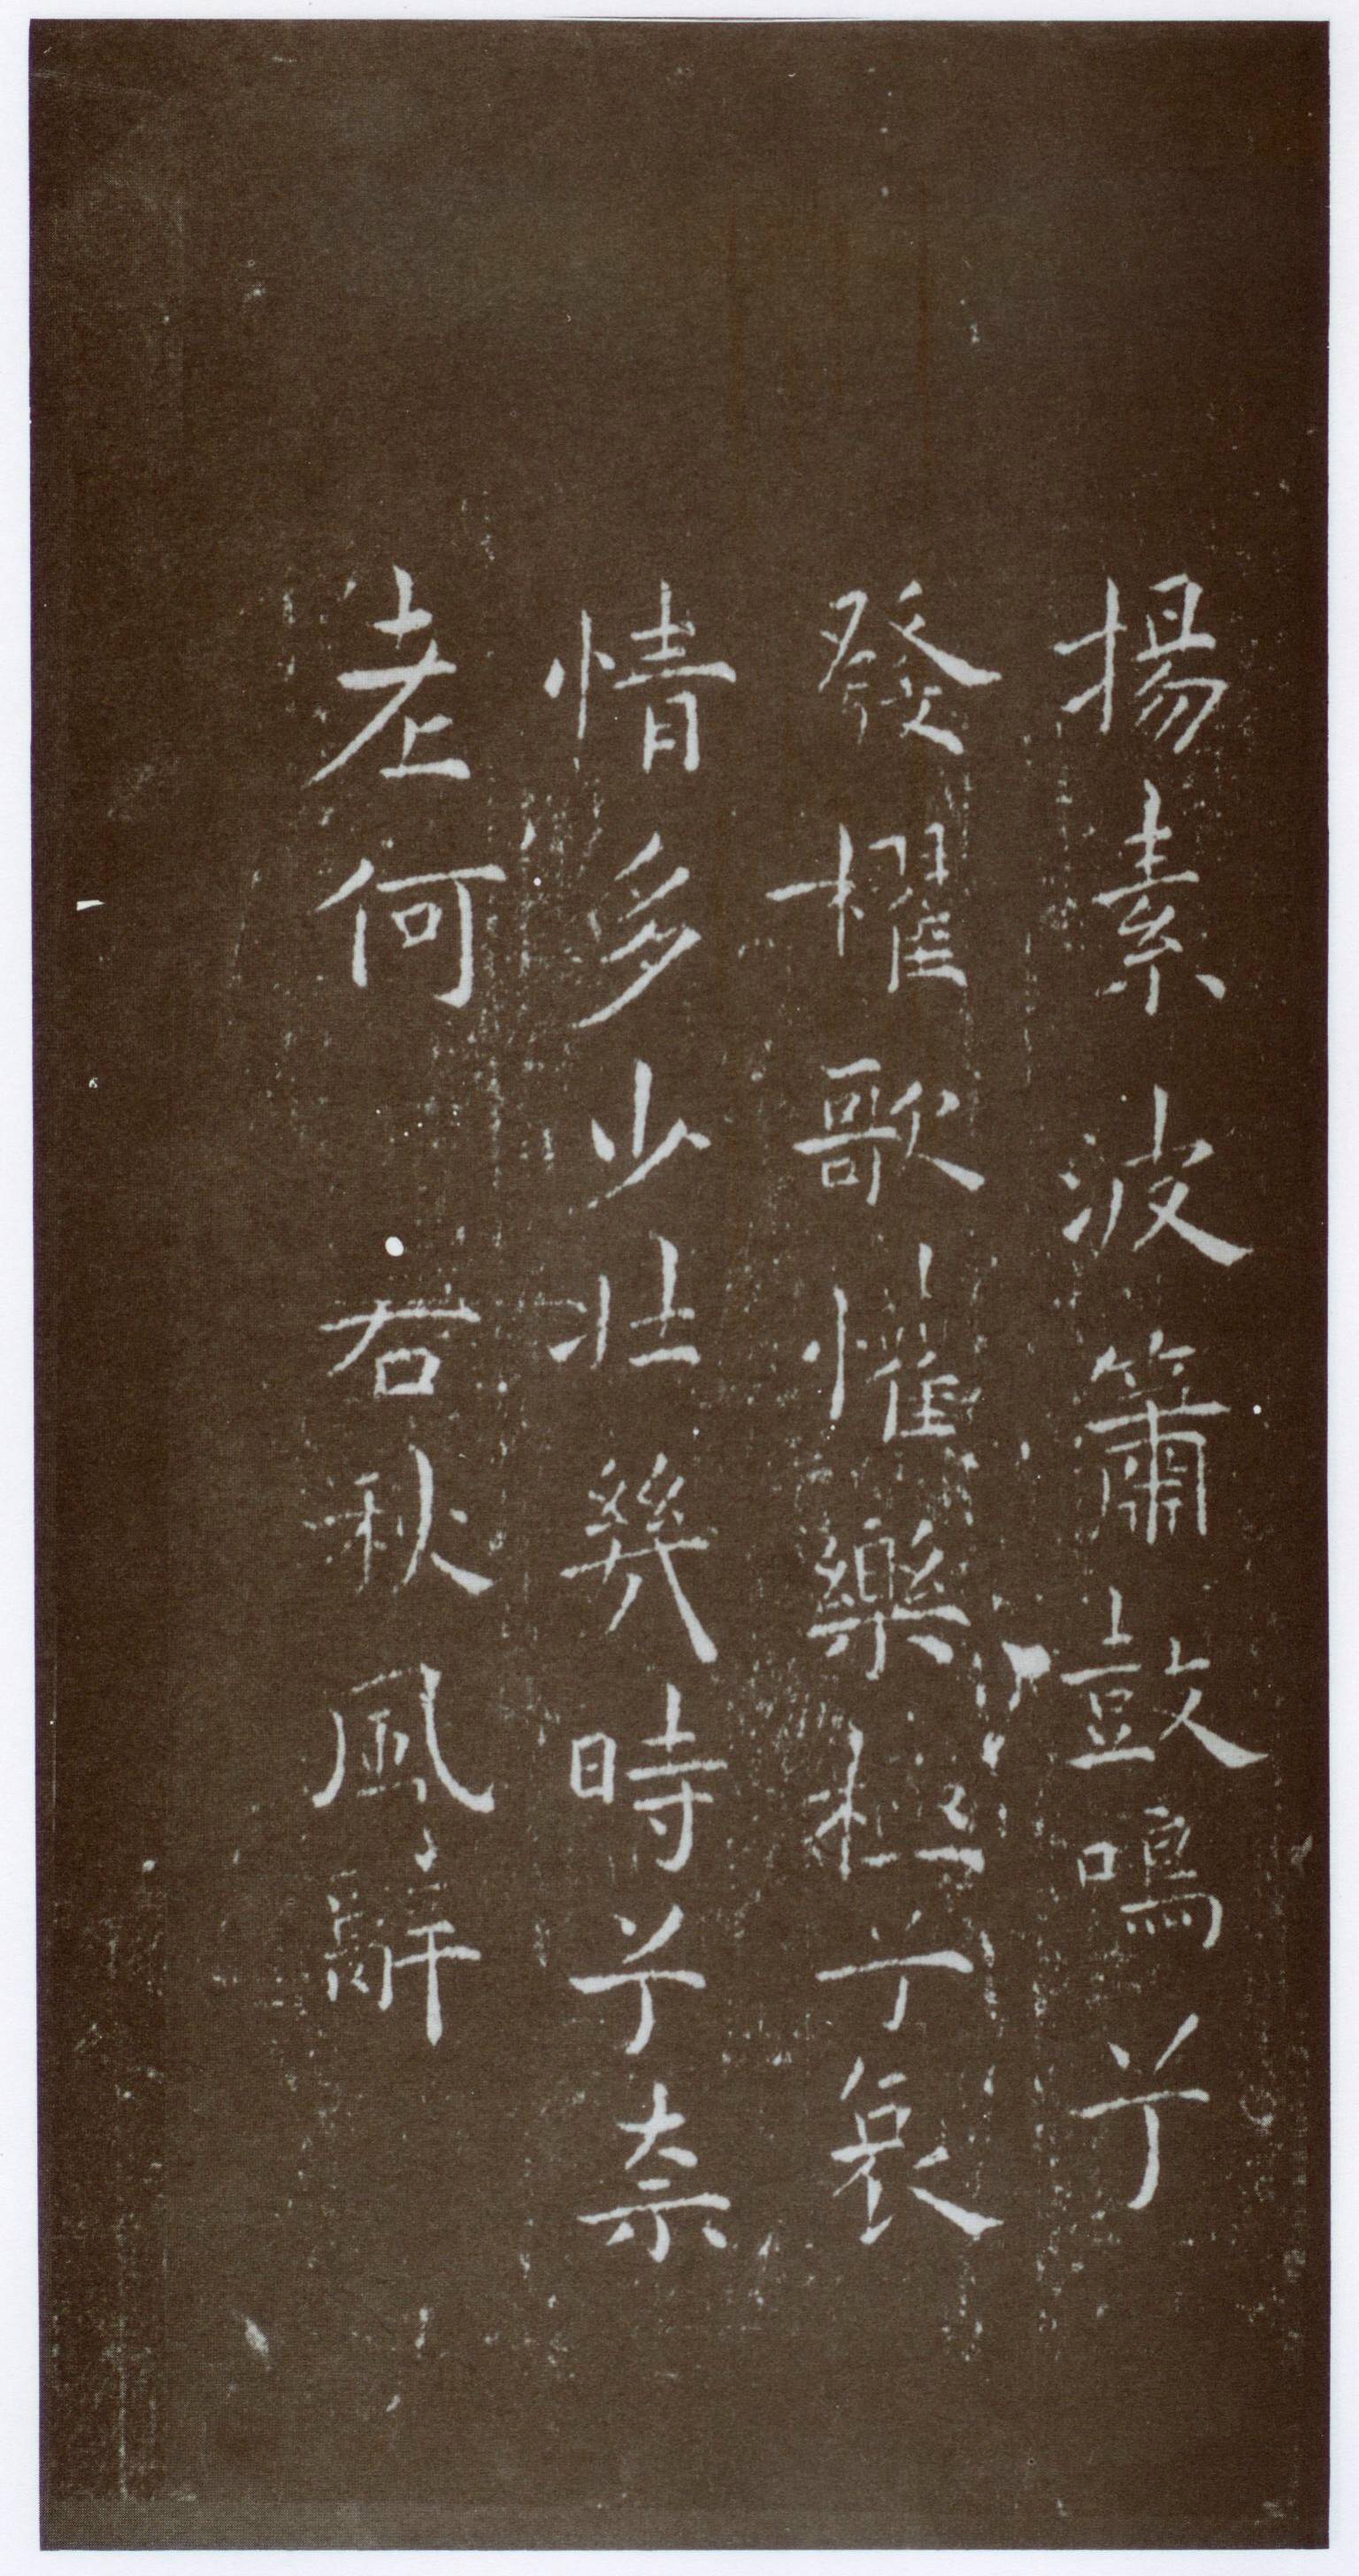 揚素波簫鼓鳴兮
發櫂歌懽樂極兮哀
情多少壯幾時兮奈
老何　右秋風辭